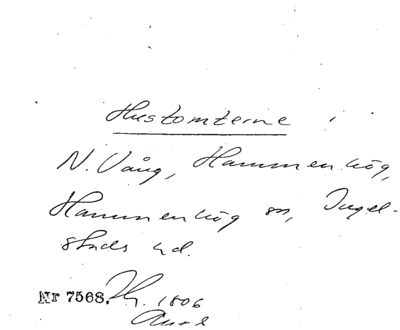 Hustomterne i
N. Vång, Hammenhög,
Hammenhög sn, Ingel-
stads hd.
Nr 7568. 1806